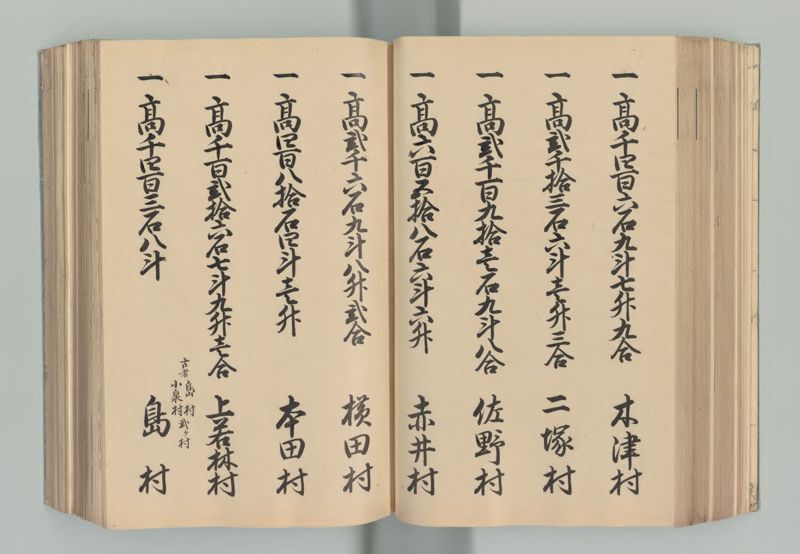 一高千四百六石九斗七升九合 木津村
一高弐千拾三石六斗壱升三合 二塚村
一高弐千百九拾壱石九斗八合 佐野村
一高六百五拾八石六斗六升 赤井村
一高弐千六石九斗八升弐合 横田村
一高四百八拾石四斗壱升 本田村
一高千百弐拾六石七斗九升壱合 上若林村
古者島村
小泉村弐ケ村
一高千四百三石八斗 島村